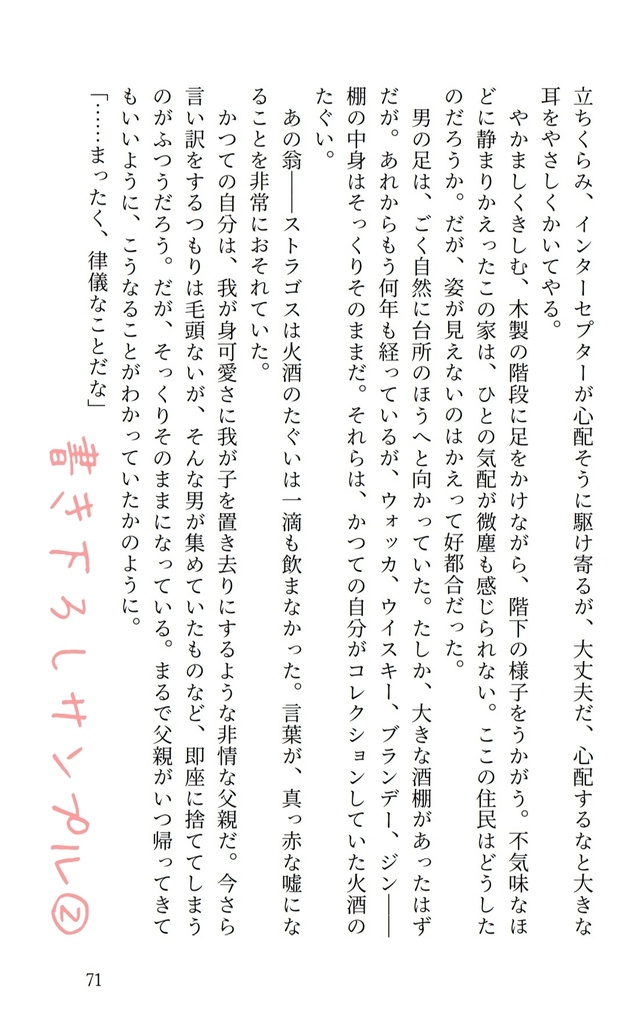 立ちくらみ、インターセプターが心配そうに駆け寄るが、大丈夫だ、心配するなと大きな
耳をやさしくかいてやる。
やかましくきしむ、木製の階段に足をかけながら、階下の様子をうかがう。不気味なほ
どに静まりかえったこの家は、ひとの気配が微塵も感じられない。ここの住民はどうした
のだろうか。だが、姿が見えないのはかえって好都合だった。
男の足は、ごく自然に台所のほうへと向かっていた。たしか、大きな酒棚があったはず
だが。あれからもう何年も経っているが、ウォッカ、ウイスキー、ブランデー、ジン――
棚の中身はそっくりそのままだ。それらは、かつての自分がコレクションしていた火酒の
たぐい。
あの翁――ストラゴスは火酒のたぐいは一滴も飲まなかった。言葉が、真っ赤な嘘にな
ることを非常におそれていた。
かつての自分は、我が身可愛さに我が子を置き去りにするような非情な父親だ。今さら
言い訳をするつもりは毛頭ないが、そんな男が集めていたものなど、即座に捨ててしまう
のがふつうだろう。だが、そっくりそのままになっている。まるで父親がいつ帰ってきて
もいいように、こうなることがわかっていたかのように。
「……まったく、律儀なことだな」
書き下ろしサンプル②
71